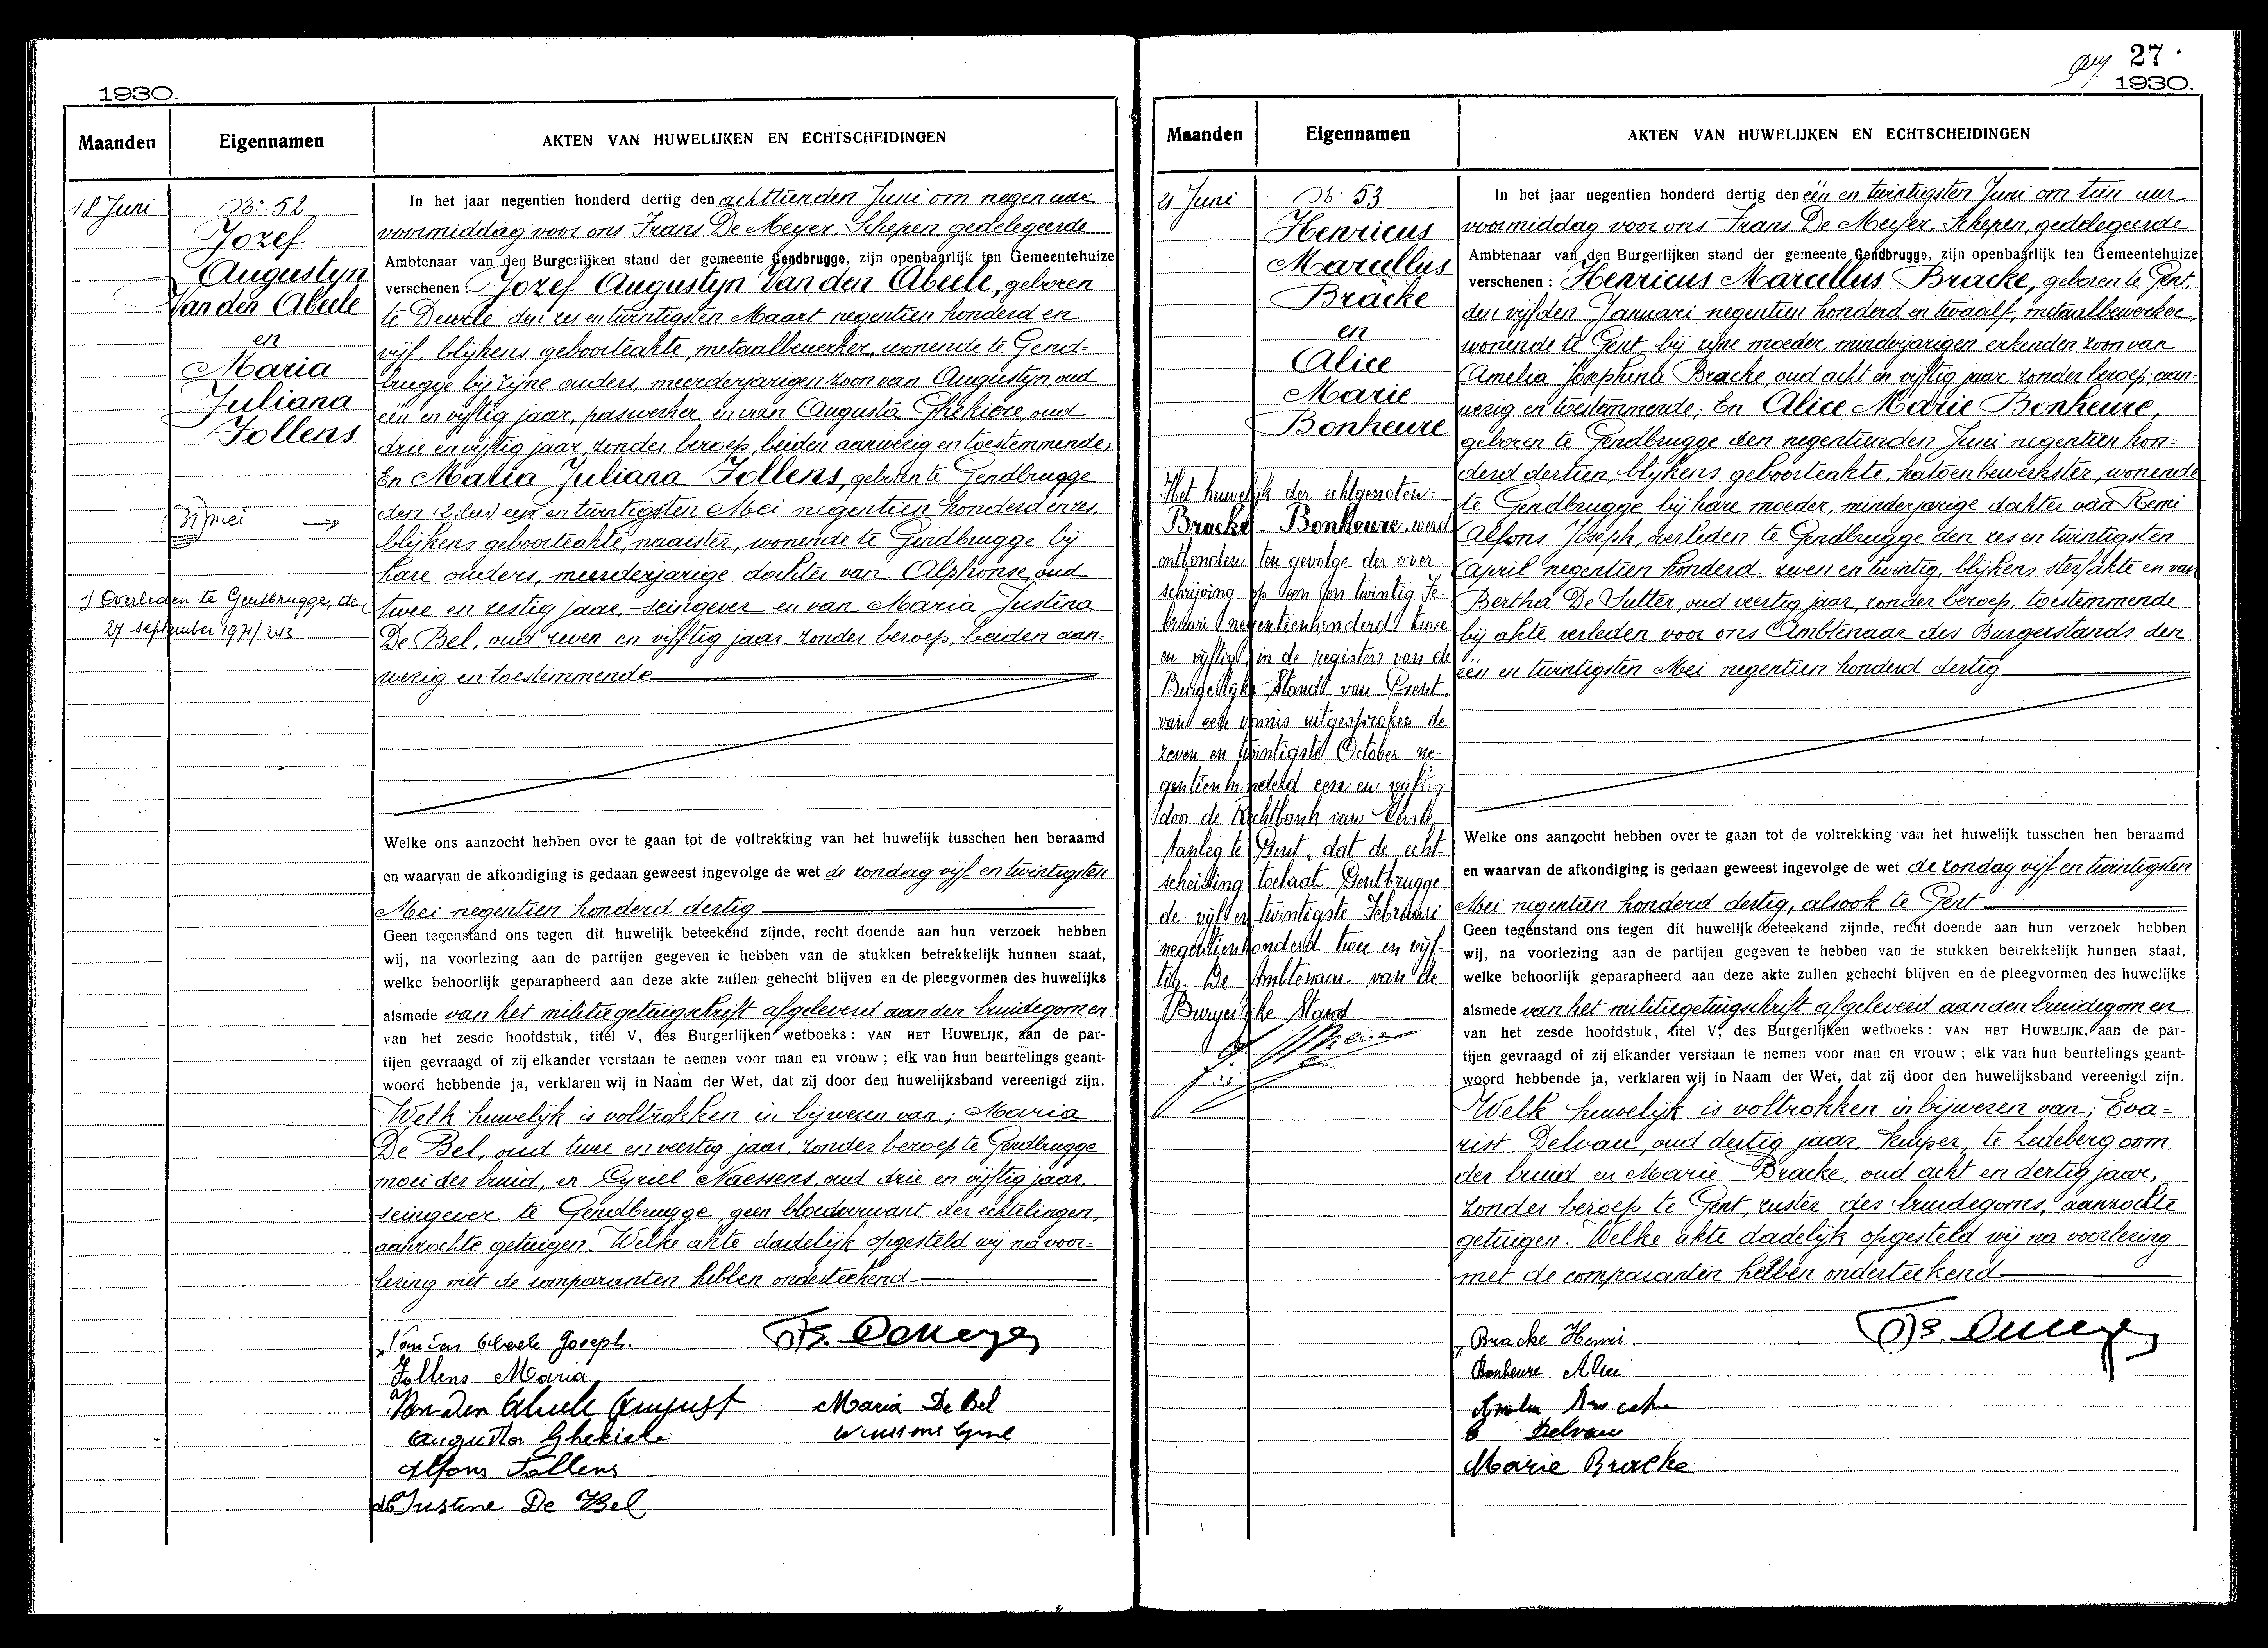 1930.
Maanden
Eigennamen
AKTEN VAN HUWELIJKEN EN ECHTSCHEIDINGEN
18 Juni
N: 52
Jozef
Augustyn
Van den Abeele
en
Maria
Juliana
Follens
31 mei
1) Overleden te Gentbrugge, de
27 september 1971/243
In het jaar negentien honderd dertig den achttienden Juni om negen uur
voormiddag voor ons Frans De Meyer, Schepen, gedelegeerde
Ambtenaar van den Burgerlijken stand der gemeente Gendbrugge, zijn openbaarlijk ten Gemeentehuize
verschenen: Jozef Augustyn Van den Abeele, geboren
te Deurle den zes en twintigsten Maart negentien honderd en
vijf, blijkens geboorteakte, metaalbewerker, wonende te Gend-
brugge bij zijne ouders, meerderjarigen zoon van Augustyn, oud
één en vijftig jaar, paswerker, en van Augusta Ghekiere, oud
drie en vijftig jaar, zonder beroep, beiden aanwezig en toestemmende;
En Maria Juliana Follens, geboren te Gendbrugge
den een en twintigsten Mei negentien honderd en zes
blijkens geboorteakte, naaister, wonende te Gendbrugge bij
hare ouders, meerderjarige dochter van Alphonse, oud
twee en zestig jaar, seingever en van Maria Justina
De Bel, oud zeven en vijftig jaar, zonder beroep, beiden aan-
wezig en toestemmende
Welke ons aanzocht hebben over te gaan tot de voltrekking van het huwelijk tusschen hen beraamd
en waarvan de afkondiging is gedaan geweest ingevolge de wet de zondag vijf en twintigsten
Mei negentien honderd dertig
Geen tegenstand ons tegen dit huwelijk beteekend zijnde, recht doende aan hun verzoek hebben
wij, na voorlezing aan de partijen gegeven te hebben van de stukken betrekkelijk hunnen staat,
welke behoorlijk geparapheerd aan deze akte zullen gehecht blijven en de pleegvormen des huwelijks
alsmede van het militiegetuigschrift afgeleverd aan den bruidegom en
van het zesde hoofdstuk, titel V, des Burgerlijken wetboeks: VAN HET HUWELIJK, aan de par-
tijen gevraagd of zij elkander verstaan te nemen voor man en vrouw; elk van hun beurtelings geant-
woord hebbende ja, verklaren wij in Naam der Wet, dat zij door den huwelijksband vereenigd zijn.
Welk huwelijk is voltrokken in bijwezen van; Maria
De Bel, oud twee en veertig jaar, zonder beroep te Gendbrugge
moei der bruid, en Cyriel Naessens, oud drie en vijftig jaar,
seingever te Gendbrugge, geen bloedverwant der echtelingen,
aanzochte getuigen. Welke akte dadelijk opgesteld wij na voor-
lezing met de comparanten hebben onderteekend
Van den Abeele Joseph.
Fs. Demeyer
Follens Maria
Van den Abeele August
Maria De Bel
Augusta Ghekiere
Alfons Follens
Justine De Bel
27
1930.
Maanden
Eigennamen
AKTEN VAN HUWELIJKEN EN ECHTSCHEIDINGEN
21 Juni
N: 53
Henricus
Marcellus
Bracke
en
Alice
Marie
Bonheure
Het huwelijk der echtgenoten:
Bracke - Bonheure, werd
ontbonden ten gevolge der over-
schrijving op een en twintig Fe-
bruari negentienhonderd twee
en vijftig in de registers van de
Burgerlijke Stand van Gent
van een vonnis uitgesproken de
zeven en twintigste October ne-
gentienhonderd een en vijftig
door de Rechtbank van Eerste
Aanleg te Gent, dat de echt-
scheiding toelaat. Gentbrugge
de vijf en twintigste Februari
negentienhonderd twee en vijf-
tig. De Ambtenaar van de
Burgerlijke Stand
In het jaar negentien honderd dertig den één en twintigsten Juni om tien uur
voormiddag voor ons Frans De Meyer, Schepen, gedelegeerde
Ambtenaar van den Burgerlijken stand der gemeente Gendbrugge, zijn openbaarlijk ten Gemeentehuize
verschenen: Henricus Marcellus Bracke, geboren te Gent,
den vijfden Januari negentien honderd en twaalf, metaalbewerker,
wonende te Gent bij zijne moeder, minderjarigen erkenden zoon van
Amelia Josephina Bracke, oud acht en vijftig jaar, zonder beroep, aan-
wezig en toestemmende; En Alice Marie Bonheure,
geboren te Gendbrugge den negentienden Juni negentien hon-
derd dertien, blijkens geboorteakte, katoenbewerkster, wonende
te Gendbrugge bij hare moeder, minderjarige dochter van Remi
Alfons Joseph, overleden te Gendbrugge den zes en twintigsten
April negentien honderd zeven en twintig, blijkens sterfakte en van
Bertha De Sutter, oud veertig jaar, zonder beroep, toestemmende
bij akte verleden voor ons Ambtenaar des Burgerstands den
één en twintigsten Mei negentien honderd dertig
Welke ons aanzocht hebben over te gaan tot de voltrekking van het huwelijk tusschen hen beraamd
en waarvan de afkondiging is gedaan geweest ingevolge de wet de zondag vijf en twintigsten
Mei negentien honderd dertig, alsook te Gent
Geen tegenstand ons tegen dit huwelijk beteekend zijnde, recht doende aan hun verzoek hebben
wij, na voorlezing aan de partijen gegeven te hebben van de stukken betrekkelijk hunnen staat,
welke behoorlijk geparapheerd aan deze akte zullen gehecht blijven en de pleegvormen des huwelijks
alsmede van het militiegetuigschrift afgeleverd aan den bruidegom en
van het zesde hoofdstuk, titel V, des Burgerlijken wetboeks: VAN HET HUWELIJK, aan de par-
tijen gevraagd of zij elkander verstaan te nemen voor man en vrouw; elk van hun beurtelings geant-
woord hebbende ja, verklaren wij in Naam der Wet, dat zij door den huwelijksband vereenigd zijn.
Welk huwelijk is voltrokken in bijwezen van; Eva-
rist Delvau, oud dertig jaar, kuiper, te Ledeberg oom
der bruid en Marie Bracke, oud acht en dertig jaar,
zonder beroep te Gent, zuster des bruidegoms, aanzochte
getuigen. Welke akte dadelijk opgesteld wij na voorlezing
met de comparanten hebben onderteekend
Bracke Henri
Fs. Demeyer
Bonheure Alice
Amelia Bracke
E Delvau
Marie Bracke